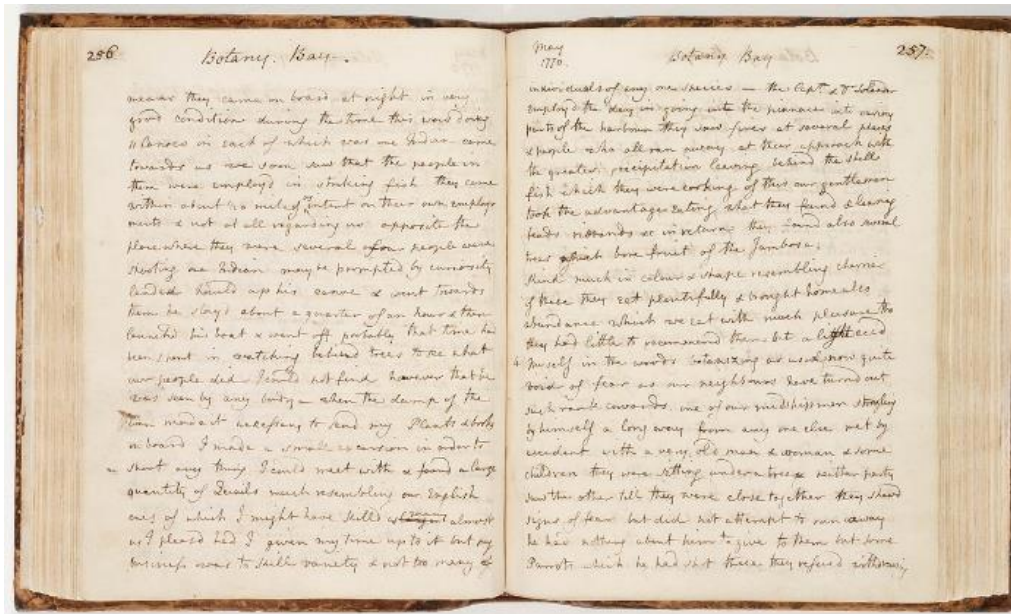 256
Botany Bay.
mear they came on board at night in very
good condition during the time this was doing
11 Canoes in each of which was one Indian came
towards us we soon saw that the people in
them were employd in striking fish they came
within about ½ a mile of us intent on their own employ
ments & not at all regarding us opposite the
place where they were several of our people were
shooting one Indian may be prompted by curiosity
landed hauld up his canoe & went towards
them he stayd about a quarter of an hour & then
launchd his boat & went off probably that time had
been spent in watching behind trees to see what
our people did I could not find however that he
was seen by any body – when the damp of the
Even made it necessary to send my Plants & books
on board I made a small excursion in order to
shoot any thing I could meet with & found a large
quantity of Quails much resembling our English
ones of which I might have killd as many almost
as I pleasd had I given my time up to it but my
business was to kill variety & not too many of
May
1770
Botany Bay
257.
individuals of any one species – the Capt & Dr Solander
employd the day in going in the pinnace into various
parts of the harbour they saw fires at several places
& people who all ran away at their approach with
the greatest precipitation leaving behind the shell
fish which they were cooking of this our gentlemen
took the advantage eating what they found & leaving
beads ribbands &c in return they found also several
trees which bore fruit of the Jambosa
kind much in colour & shape resembling cherries
of these they eat plentifully & brought home also
abundance which we eat with much pleasure tho
they had little to recommend them but a light acid
4. Myself in the woods botanizing as usual now quite
void of fear as our neighbours have turnd out
such rank cowards one of our midshipmen stragling
by himself a long way from any one else met by
accident with a very old man & woman & some
children they were setting under a tree & neither party
saw the other till they were close together they shewd
signs of fear but did not attempt to run away
he had nothing about him to give to them but some
Parrots which he had shot these they refusd withdrawing